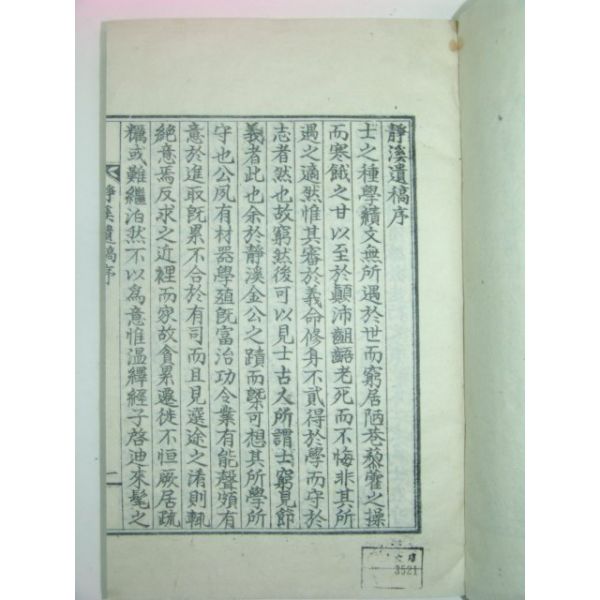 靜溪遺稿序
士之種學績文無所遇於世而窮居陋巷藜藿之操
而寒餓之甘以至於顚沛齟齬老死而不悔非其所
遇之適然惟其審於義命修身不貳得於學而守於
志者然也故窮然後可以見士古人所謂士窮見節
義者此也余於靜溪金公之蹟而槩可想其所學所
守也公夙有材器學殖旣富治功令業有能聲頗有
意於進取旣累不合於有司而且見選途之淆則輒
絶意焉反求之近裡而家故貧累遷徙不恒厥居疏
糲或難繼泊然不以為意惟溫繹經子啓迪來髦之
靜溪遺稿序
一
文庫
3521